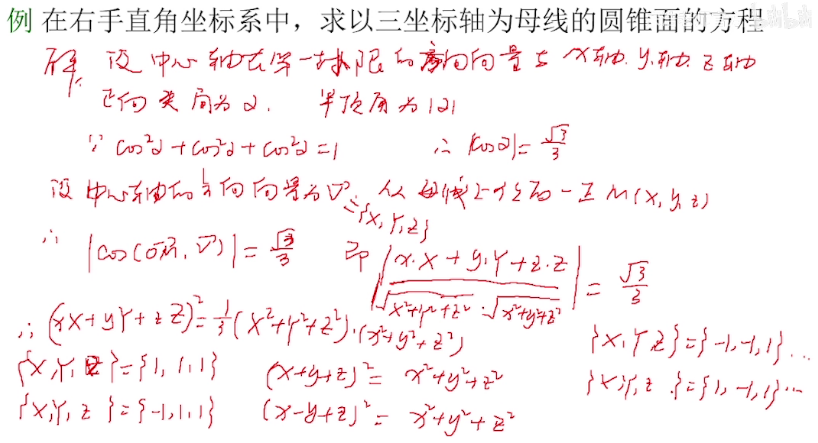 例 在右手直角坐标系中，求以三坐标轴为母线的圆锥面的方程
解 设中心轴在第一卦限的方向向量与 x轴. y轴. z轴
正向夹角为α. 半顶角为|α|
∵ cos²α+cos²α+cos²α=1 ∴ |cosα|=√3/3
设中心轴的方向向量为 V={X,Y,Z} 母线上任一点 M(x,y,z)
∴ |cos(OM, V)|=√3/3 即 |(x·X+y·Y+z·Z)/(√(X²+Y²+Z²)·√(x²+y²+z²))|=√3/3
∴ (xX+yY+zZ)²=1/3(X²+Y²+Z²)·(x²+y²+z²)
{X,Y,Z}={1,1,1} (x+y+z)²=x²+y²+z² {X,Y,Z}={-1,-1,1}...
{X,Y,Z}={-1,1,1} (x-y+z)²=x²+y²+z² {X,Y,Z}={1,-1,1}...